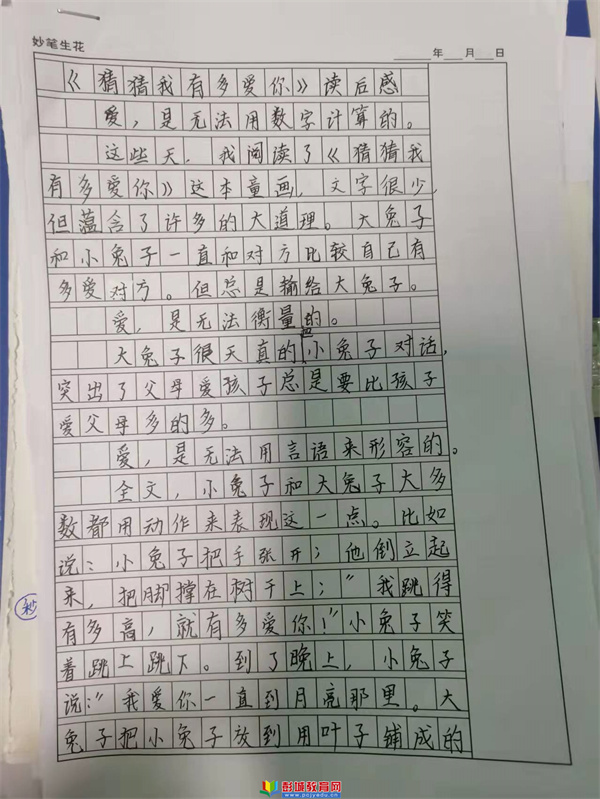 妙笔生花
年 月 日
《猜猜我有多爱你》读后感
爱,是无法用数字计算的。
这些天,我阅读了《猜猜我
有多爱你》这本童画,文字很少,
但蕴含了许多的大道理。大兔子
和小兔子一直和对方比较自己有
多爱对方。但总是输给大兔子。
爱,是无法衡量的。
大兔子很天真的和小兔子对话,
突出了父母爱孩子总是要比孩子
爱父母多的多。
爱,是无法用言语来形容的。
全文,小兔子和大兔子大多
数都用动作来表现这一点。比如
说:小兔子把手张开;他倒立起
来,把脚撑在树干上;“我跳得
有多高,就有多爱你!”小兔子笑
着跳上跳下。到了晚上,小兔子
说:“我爱你一直到月亮那里。大
兔子把小兔子放到用叶子铺成的
彭城教育网
www.pcjyedu.cn